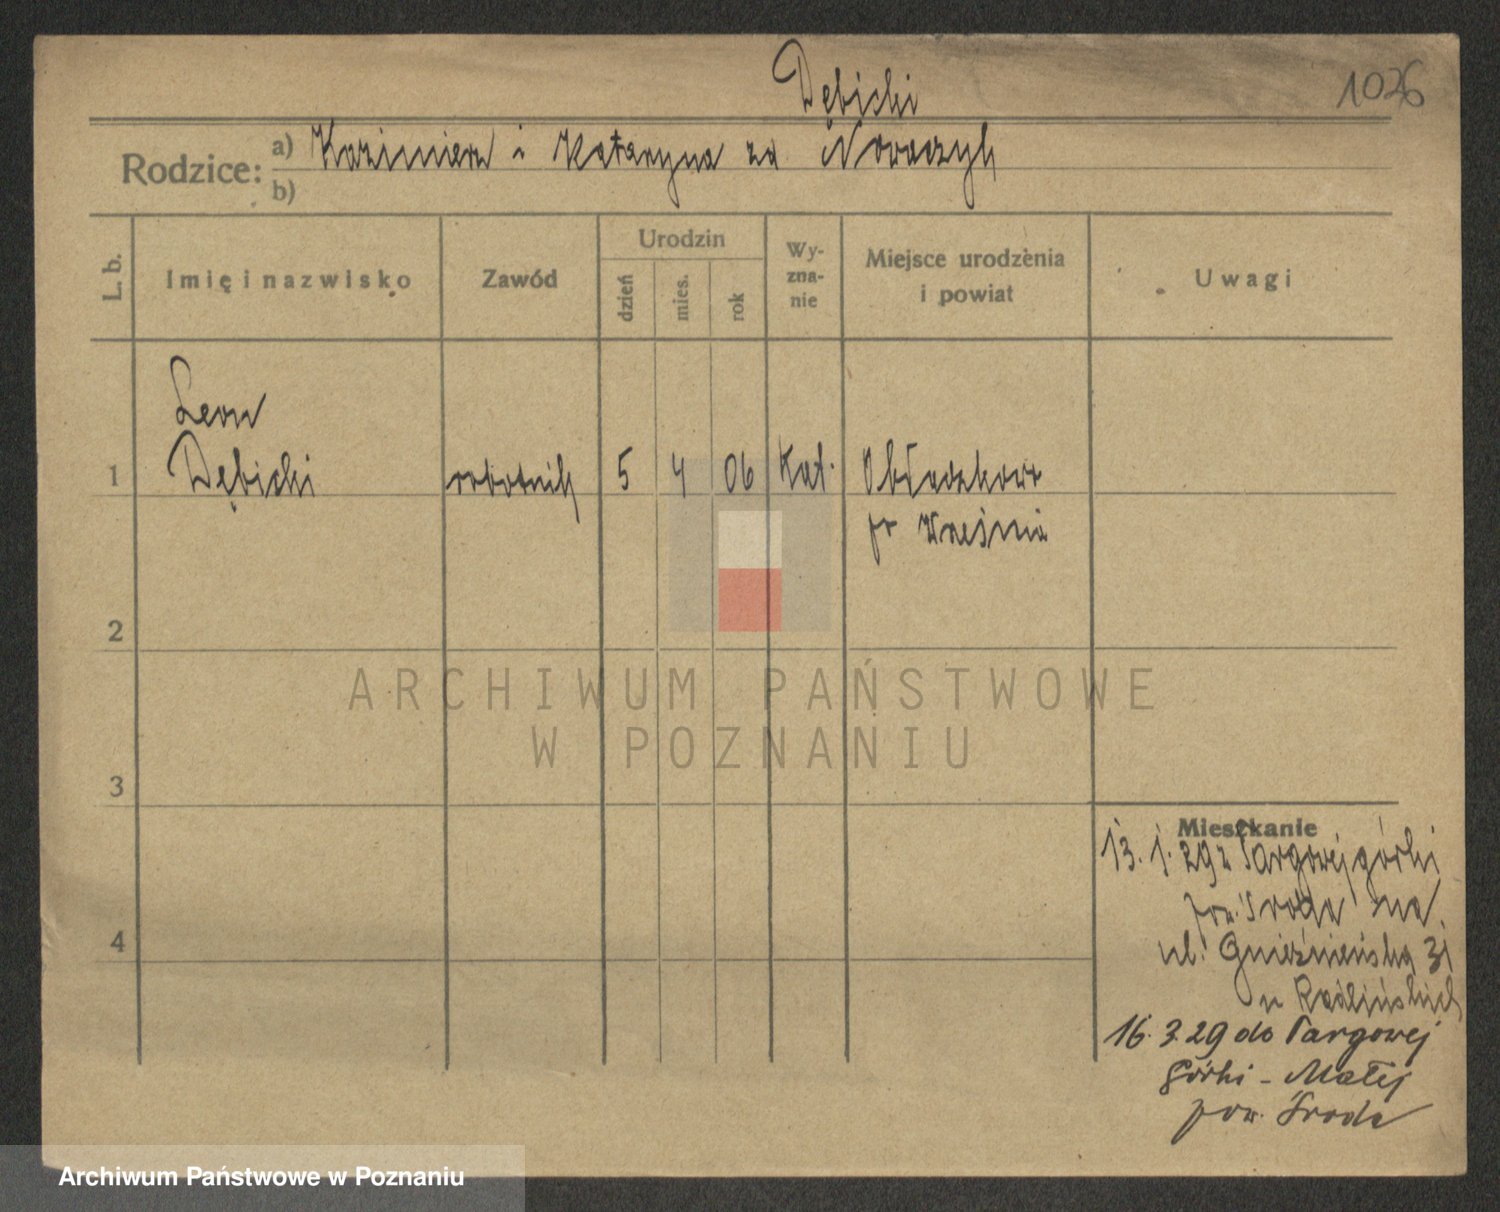 Dębicki
1026
Rodzice:
a) Kazimierz i Katarzyna za Nowaczyk
b)
L. b.
Imię i nazwisko
Zawód
Urodzin
dzień
mies.
rok
Wy-
zna-
nie
Miejsce urodzenia
i powiat
Uwagi
Leon
1 Dębicki robotnik 5 4 06 Kat.
pr Września
2
ARCHIWUM PAŃSTWOWE
W POZNANIU
3
Mieszkanie
13. 1. 29 z Targowejgórki
pow. Środa na
4
ul. Gnieźnieńska 31
u
16. 3 29 do Targowej
Górki - Małej
pow. Środa
Archiwum Państwowe w Poznaniu